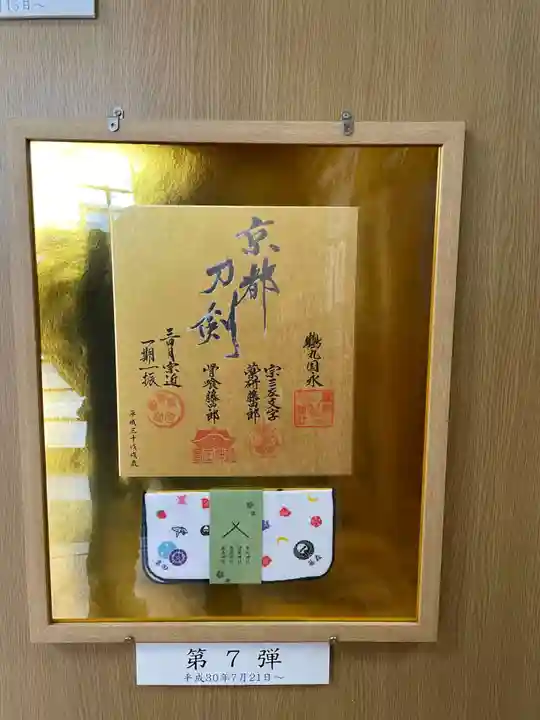 月15日～
京都
刀剣
鶴丸国永
宗三左文字
薬研藤四郎
骨喰藤四郎
三日月宗近
一期一振
平成三十年戊戌歳
第7弾
平成30年7月21日～